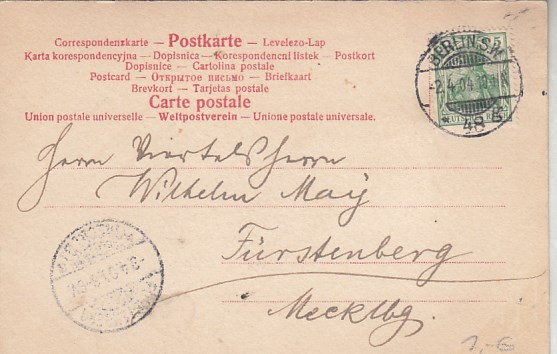 Correspondenzkarte — Postkarte — Levelezo-Lap
Karta korespondencyjna — Dopisnica — Korespondencni listek — Postkort
Dopisnice — Cartolina postale
Postcard — Открытое письмо — Briefkaart
Brevkort — Tarjetas postale
Carte postale
Union postale universelle — Weltpostverein — Unione postale universale.
BERLIN.S.W.
2.4.04
48
DEUTSCHES REICH
Herrn Viertelsherrn
Wilhelm May
Fürstenberg
Mecklbg.
1,-€